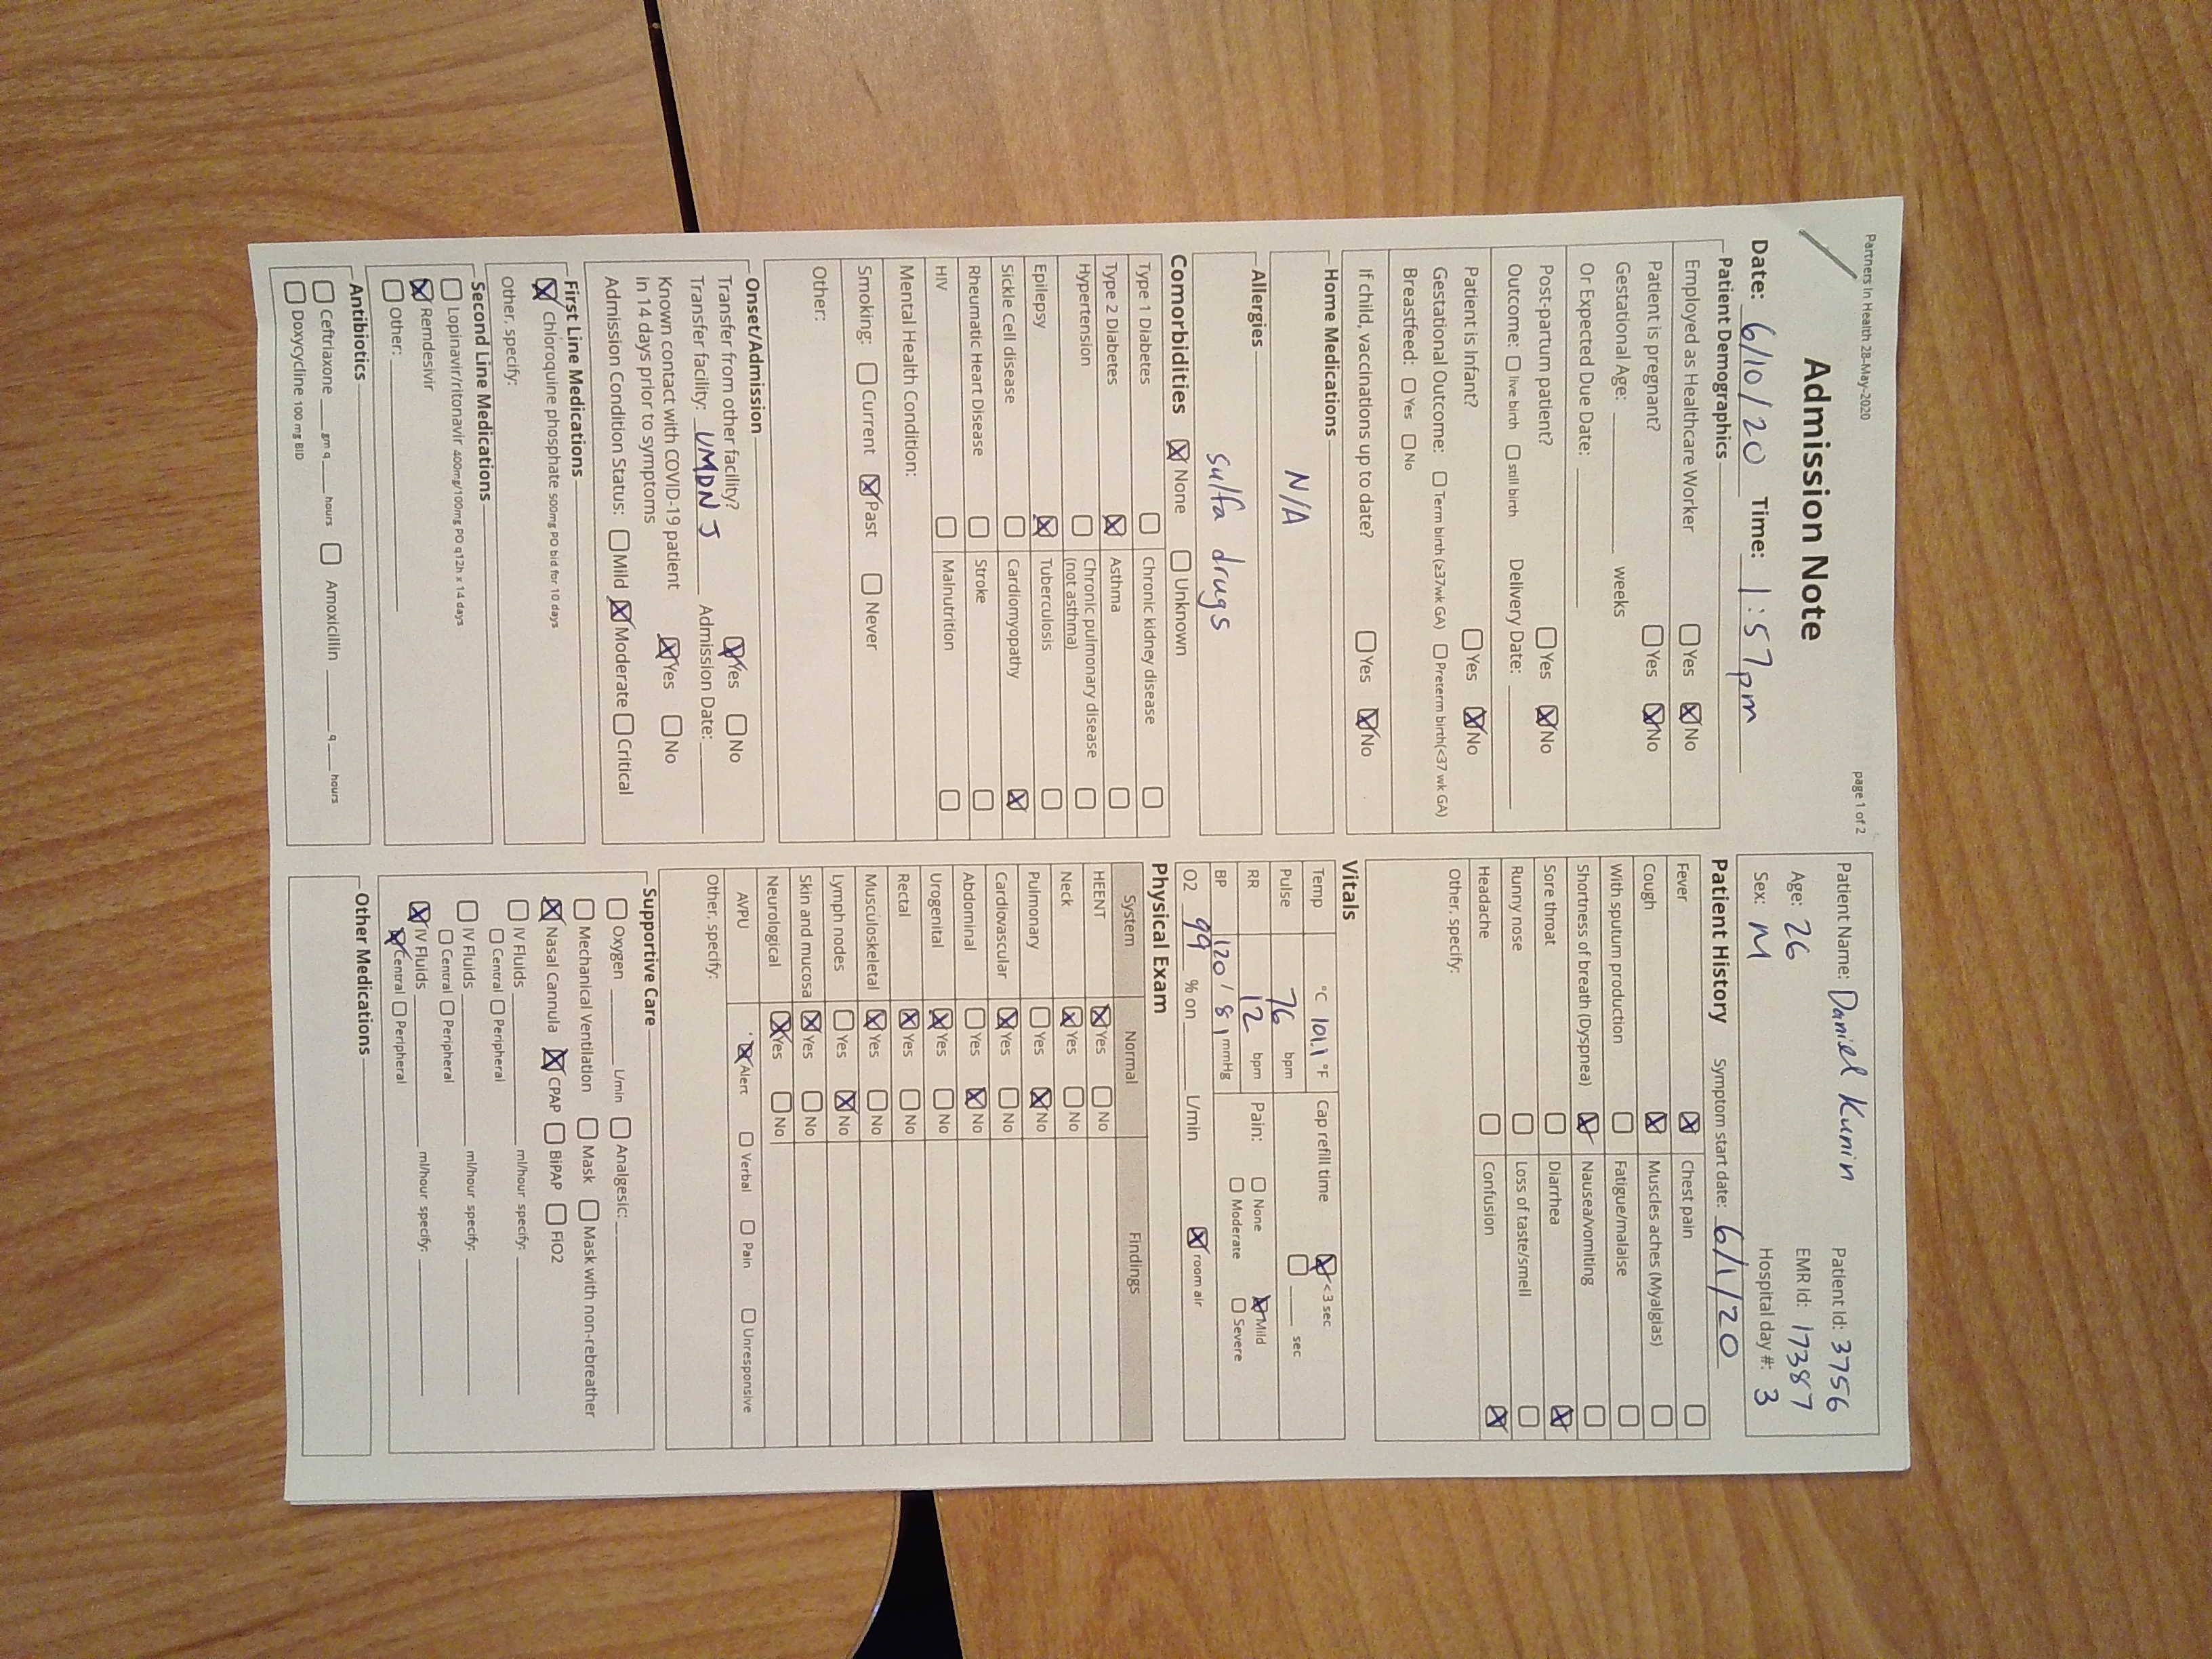 Partners In Health 28-May-2020
page 1 of 2
Admission Note
Date: 6/10/20 Time: 1:57pm
Patient Demographics
Employed as Healthcare Worker ☐ Yes ☒ No
Patient is pregnant? ☐ Yes ☒ No
Gestational Age: ______ weeks
Or Expected Due Date: ______
Post-partum patient? ☐ Yes ☒ No
Outcome: ☐ live birth ☐ still birth Delivery Date: ______
Patient is Infant? ☐ Yes ☒ No
Gestational Outcome: ☐ Term birth (≥37wk GA) ☐ Preterm birth(<37 wk GA)
Breastfeed: ☐ Yes ☐ No
If child, vaccinations up to date? ☐ Yes ☒ No
Home Medications
N/A
Allergies
sulfa drugs
Comorbidities ☒ None ☐ Unknown
Type 1 Diabetes ☐ Chronic kidney disease ☐
Type 2 Diabetes ☒ Asthma ☐
Hypertension ☐ Chronic pulmonary disease ☐
(not asthma)
Epilepsy ☒ Tuberculosis ☐
Sickle Cell disease ☐ Cardiomyopathy ☒
Rheumatic Heart Disease ☐ Stroke ☐
HIV ☐ Malnutrition ☐
Mental Health Condition:
Smoking: ☐ Current ☒ Past ☐ Never
Other:
Onset/Admission
Transfer from other facility? ☒ Yes ☐ No
Transfer facility: UMDNJ Admission Date: ______
Known contact with COVID-19 patient
in 14 days prior to symptoms ☒ Yes ☐ No
Admission Condition Status: ☐ Mild ☒ Moderate ☐ Critical
First Line Medications
☒ Chloroquine phosphate 500mg PO bid for 10 days
Other, specify:
Second Line Medications
☐ Lopinavir/ritonavir 400mg/100mg PO q12h x 14 days
☒ Remdesivir
☐ Other: ______
Antibiotics
☐ Ceftriaxone ___ gm q ___ hours ☐ Amoxicillin ______ q ___ hours
☐ Doxycycline 100 mg BID
Patient Name: Daniel Kunin Patient Id: 3756
Age: 26 EMR Id: 17387
Sex: M Hospital day #: 3
Patient History Symptom start date: 6/1/20
Fever ☒ Chest pain ☐
Cough ☒ Muscles aches (Myalgias) ☐
With sputum production ☐ Fatigue/malaise ☐
Shortness of breath (Dyspnea) ☒ Nausea/vomiting ☐
Sore throat ☐ Diarrhea ☒
Runny nose ☐ Loss of taste/smell ☐
Headache ☐ Confusion ☒
Other, specify:
Vitals
Temp °C 101.1 °F Cap refill time ☒ <3 sec
Pulse 76 bpm ☐ ___ sec
RR 12 bpm Pain: ☐ None ☒ Mild
BP 120/81 mmHg ☐ Moderate ☐ Severe
O2 99 % on ______ L/min ☒ room air
Physical Exam
System Normal Findings
HEENT ☒ Yes ☐ No
Neck ☒ Yes ☐ No
Pulmonary ☐ Yes ☒ No
Cardiovascular ☒ Yes ☐ No
Abdominal ☐ Yes ☒ No
Urogenital ☒ Yes ☐ No
Rectal ☒ Yes ☐ No
Musculoskeletal ☒ Yes ☐ No
Lymph nodes ☐ Yes ☒ No
Skin and mucosa ☒ Yes ☐ No
Neurological ☒ Yes ☐ No
AVPU ☒ Alert ☐ Verbal ☐ Pain ☐ Unresponsive
Other, specify:
Supportive Care
☐ Oxygen ______ L/min ☐ Analgesic: ______
☐ Mechanical Ventilation ☐ Mask ☐ Mask with non-rebreather
☒ Nasal Cannula ☒ CPAP ☐ BiPAP ☐ FiO2
☐ IV Fluids ______ ml/hour specify: ______
☐ Central ☐ Peripheral
☐ IV Fluids ______ ml/hour specify: ______
☐ Central ☐ Peripheral
☒ IV Fluids ______ ml/hour specify: ______
☒ Central ☐ Peripheral
Other Medications